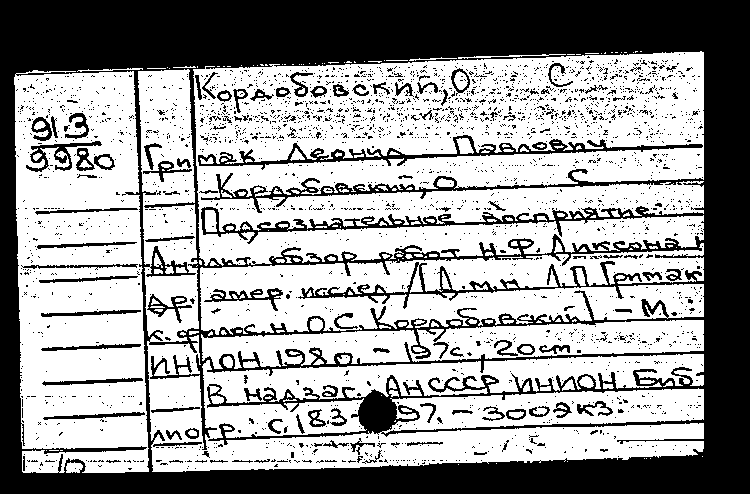 Кордобовский, О С
91.3
9980
Гримак, Леонид Павлович
Кордобовский, О С
Подсознательное восприятие:
Аналит. обзор работ Н.Ф. Диксона и
др. амер. исслед / [Д.м.н. Л.П. Гримак
к. филос. н. О.С. Кордобовский]. - М.:
ИНИОН, 1980. - 197с.; 20см.
В надзаг.: АН СССР, ИНИОН. Биб-
лиогр.: с. 183- 97. - 300экз.